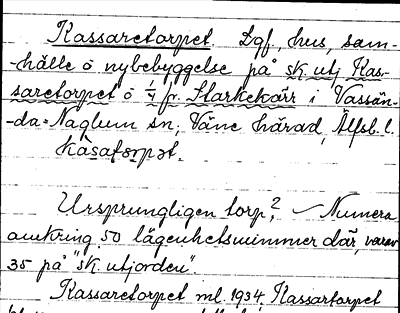 Kassaretorpet. Lgf, hus, sam-
-hälle o nybebyggelse på sk. utj Kas-
saretorpet o 1/4 fr. Starkekärr i Vassän-
-da-Naglum sn, Väne härad, Älfsb. l.
kàsatorpət.
Ursprungligen torp,? – Numera
omkring 50 lägenhetsnummer där, varav
35 på "sk. utjorden".
Kassaretorpet ml. 1934, Kassartorpet